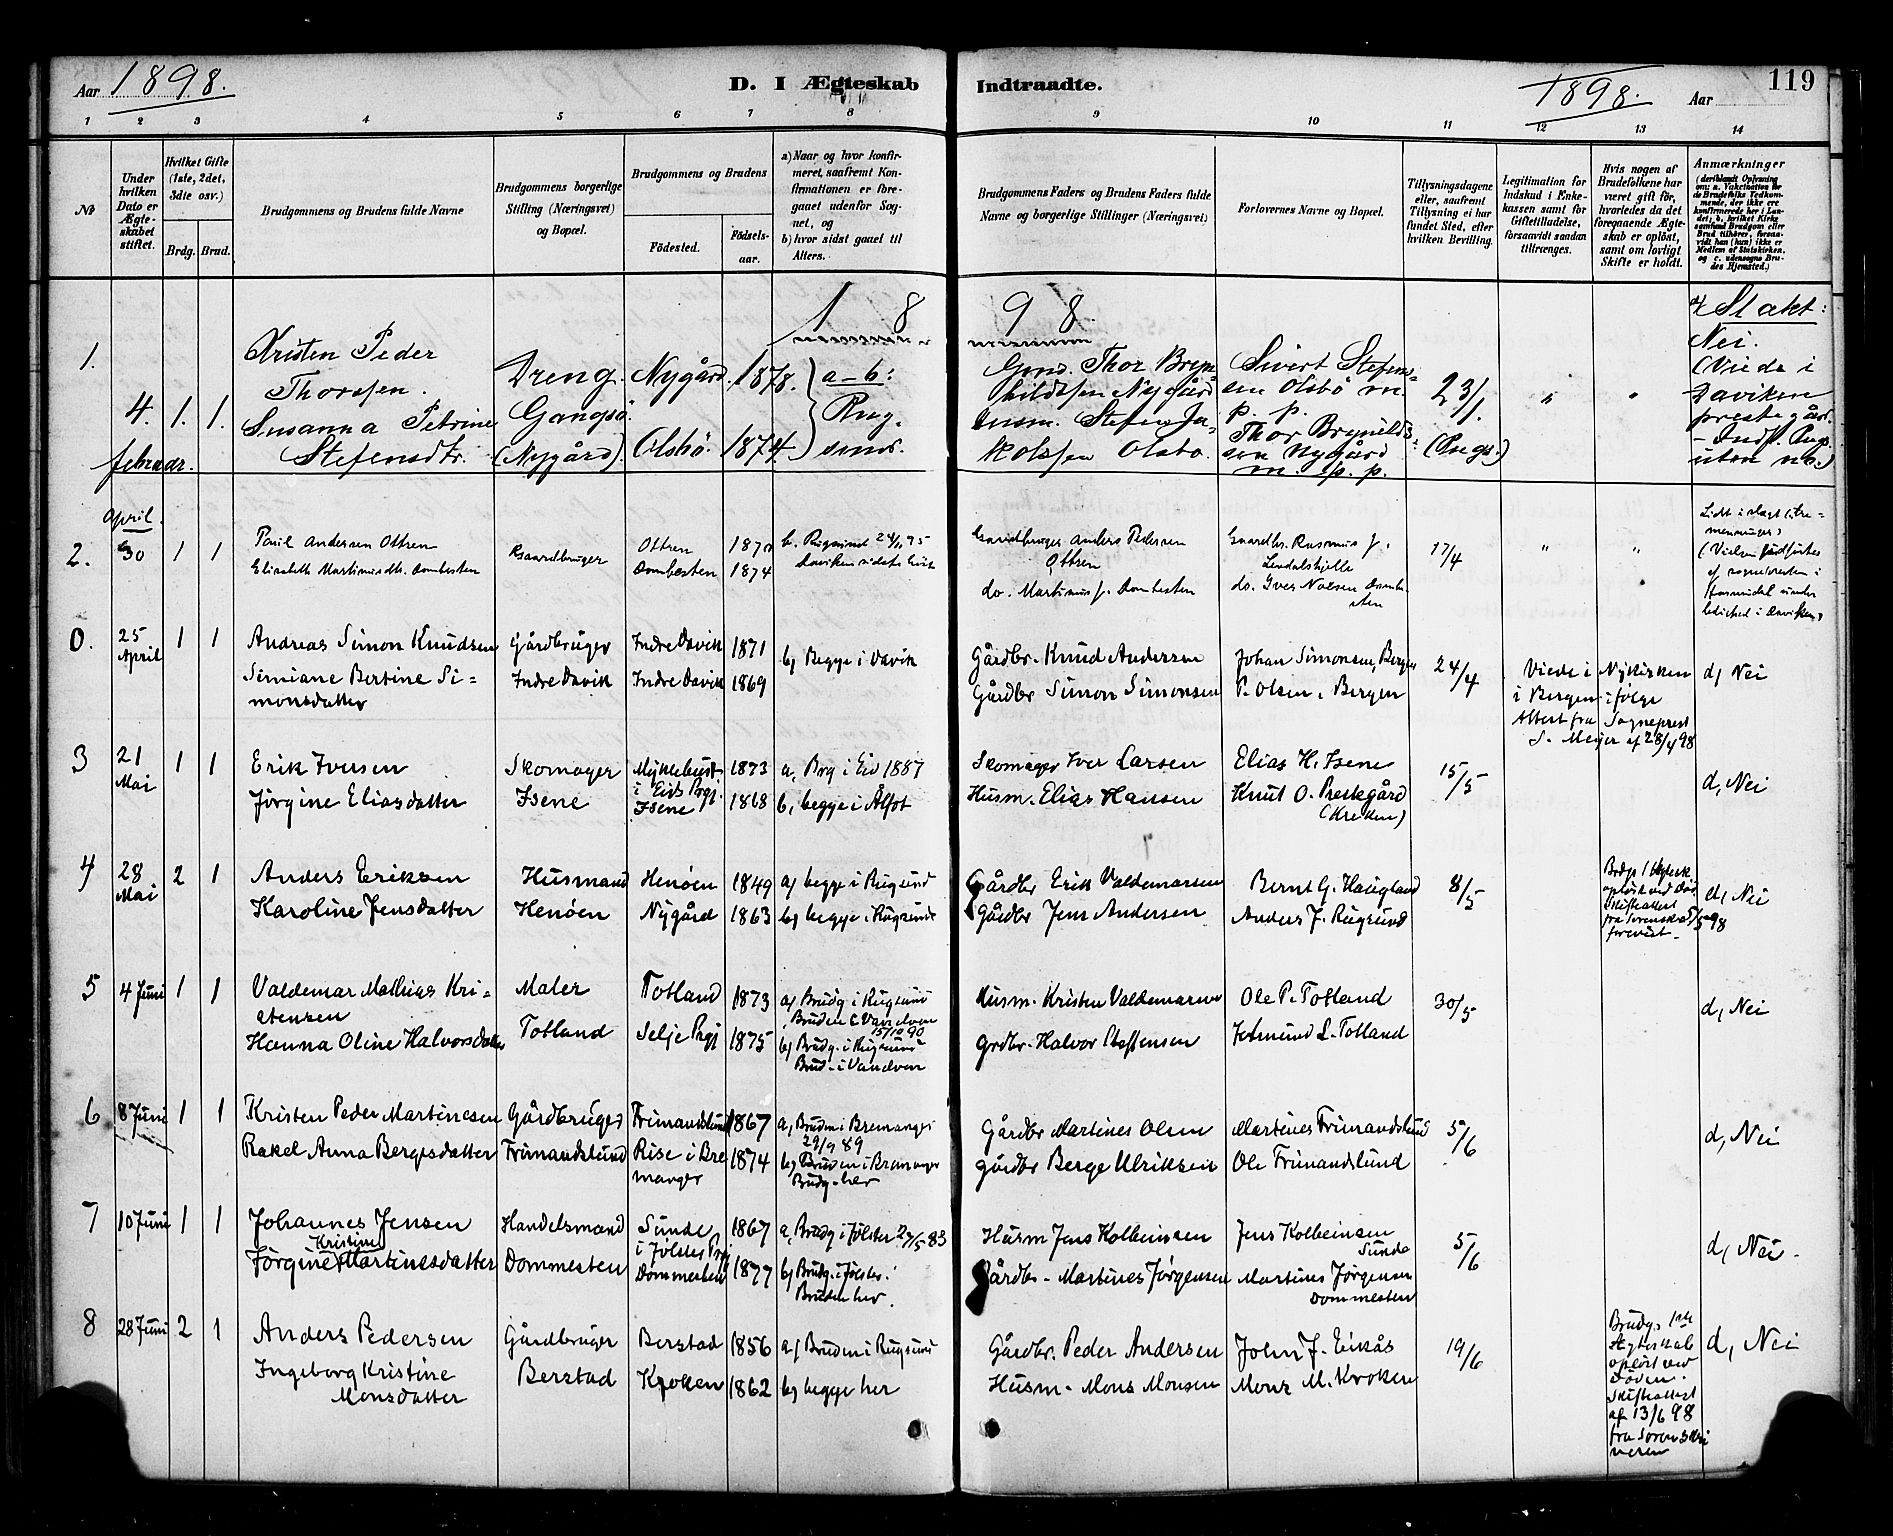 Aar 1898.
D. I Ægteskab
Indtraadte.
1898. Aar
119
1 2 3 4 5 6 7 8 9 10 11 12 13 14
No
Under hvilken Dato er Ægteskabet stiftet.
Hvilket Gifte (1ste, 2det, 3die osv.)
Brdg. Brud.
Brudgommens og Brudens fulde Navne
Brudgommens borgerlige Stilling (Næringsvei) og Bopæl.
Brudgommens og Brudens
Födested.
Födsels-aar.
a) Naar og hvor konfirmeret, saafremt Konfirmationen er foregaaet udenfor Sognet, og
b) hvor sidst gaaet til Alters.
Brudgommens Faders og Brudens Faders fulde Navne og borgerlige Stillinger (Næringsvei)
Forlovernes Navne og Bopæl.
Tillysningsdagene eller, saafremt Tillysning ei har fundet Sted, efter hvilken Bevilling.
Legitimation for Indskud i Enkekassen samt for Giftetilladelse, forsaavidt saadan tiltrænges.
Hvis nogen af Brudefolkene har været gift før, hvorledes da det foregaaende Ægteskab er oplöst, samt om lovligt Skifte er holdt.
Anmærkninger
1 8 9 8.
1.
4. februar.
1. 1.
Kristen Peder Thorssen.
Susanna Petrine Stefensdtr.
Dreng. Gangsö. (Nygård).
Nygård. 1878.
Olsbö. 1874.
a-b: Rugsund.
Thor Brynhildsen Nygård
Husm. Stefen Jakobssen Olsbö.
Sivert Stefenssen Olsbö m. p. p.
Thor Brynildssen Nygård m. p. p.
23/1. (Rugs.)
" "
Slækt: Nei.
(Viede i Daviken prestegård.
2.
April. 30
1 1
Paul Andersen Ottren
Elisabeth Martinusdtr. Dombesten
Gaardbruger
Ottren 1870
Dombesten 1874
b. Rugsund 24/1 95
Gaardbruger Anders Pedersen Ottren
do. Martinus J. Dombesten
Gaardbr. Rasmus J. Lendalskjelle
do. Iver Nilsen Dombesten
17/4
" "
0.
25 April
1 1
Andreas Simon Knudsen
Simiane Bertine Simonsdatter
Gårdbruger Indre Davik
Indre Davik 1871
Indre Davik 1869
b, Begge i Davik
Gårdbr. Knud Andersen
Gårdbr Simon Simonsen
Johan Simonsen, Bergen
P. Olsen, Bergen
24/4
Viede i Nykirken i Bergen ifølge Attest fra Sogneprest S. Meyer af 28/4 98
d, Nei
3
21 Mai
1 1
Erik Iversen
Jørgine Eliasdatter
Skomager Isene
Myklebust i Eids Prgj. 1873
Isene 1868
a, Brg i Eid 1887
b, begge i Ålfot
Skomager Iver Larsen
Husm. Elias Hansen
Elias H. Isene
Knut O. Prestgård
15/5
d, Nei
4
28 Mai
2 1
Anders Eriksen
Karoline Jensdatter
Husmand Henöen
Henöen 1849
Nygård 1863
a, begge i Rugsund
b, begge i Rugsund
Gårdbr Erik Valdemarsen
Gårdbr Jens Andersen
Bernt G. Haugland
Anders J. Rugsund
8/5
d, Nei
5
4 Juni
1 1
Valdemar Mathias Kristensen
Hanna Oline Halvorsdatter
Maler Totland
Totland 1873
Selje Prgj 1875
a, Brudg i Rugsund
Bruden i Vanelven 15/10 90
b, Brudg. i Rugsund
Brud. i Vanelven
Husm. Kristen Valdemarsen
Grdbr. Halvor Steffensen
Ole P. Totland
Jetmund L. Totland
30/5
d, Nei
6
8 Juni
1 1
Kristen Peder Martinesen
Rakel Anna Bergesdatter
Gårdbruger Frimandslund
Frimandslund 1867
Rise i Bremanger 1874
a, Bruden i Bremanger 29/9 89
b, Bruden i Bremanger
Brudg. her
Gårdbr Martines Olsen
Gårdbr Berge Ulriksen
Martines Frimandslund
Ole Frimandslund
5/6
d, Nei
7
10 Juni
1 1
Johannes Jensen
Jørgine Kristine Martinesdatter
Handelsmand Dommesten
Sunde i Jølster Prgj 1867
Dommesten 1877
a, Brudg i Jølster 27/5 83
b, Brudg. i Jølster.
Bruden her.
Husm Jens Kolbeinsen
Gårdbr. Martines Jørgensen
Jens Kolbeinsen Sunde
Martines Jørgensen Dommesten
5/6
d, Nei.
8
28 Juni
2 1
Anders Pedersen
Ingeborg Kristine Monsdatter
Gårdbruger Berstad
Berstad 1856
Kroken 1862
a, Bruden i Rugsund
b, begge her
Gårdbr. Peder Andersen
Husm. Mons Monsen
John J. Eikås
Mons M. Kroken
19/6
Brudgs 1ste Ægteskab opløst ved Døden. Skifteattest af 13/6 98 fra Sorenskriveren
d, Nei